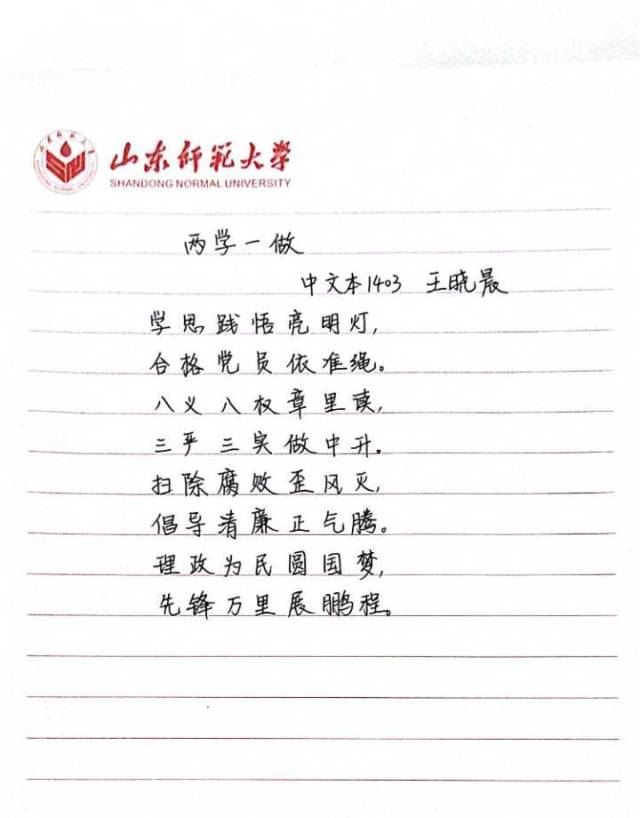 山东师范大学
SHANDONG NORMAL UNIVERSITY
两学一做
中文本1403 王晓晨
学思践悟亮明灯,
合格党员依准绳。
八义八权章里读,
三严三实做中升。
扫除腐败歪风灭,
倡导清廉正气腾。
理政为民圆国梦,
先锋万里展鹏程。